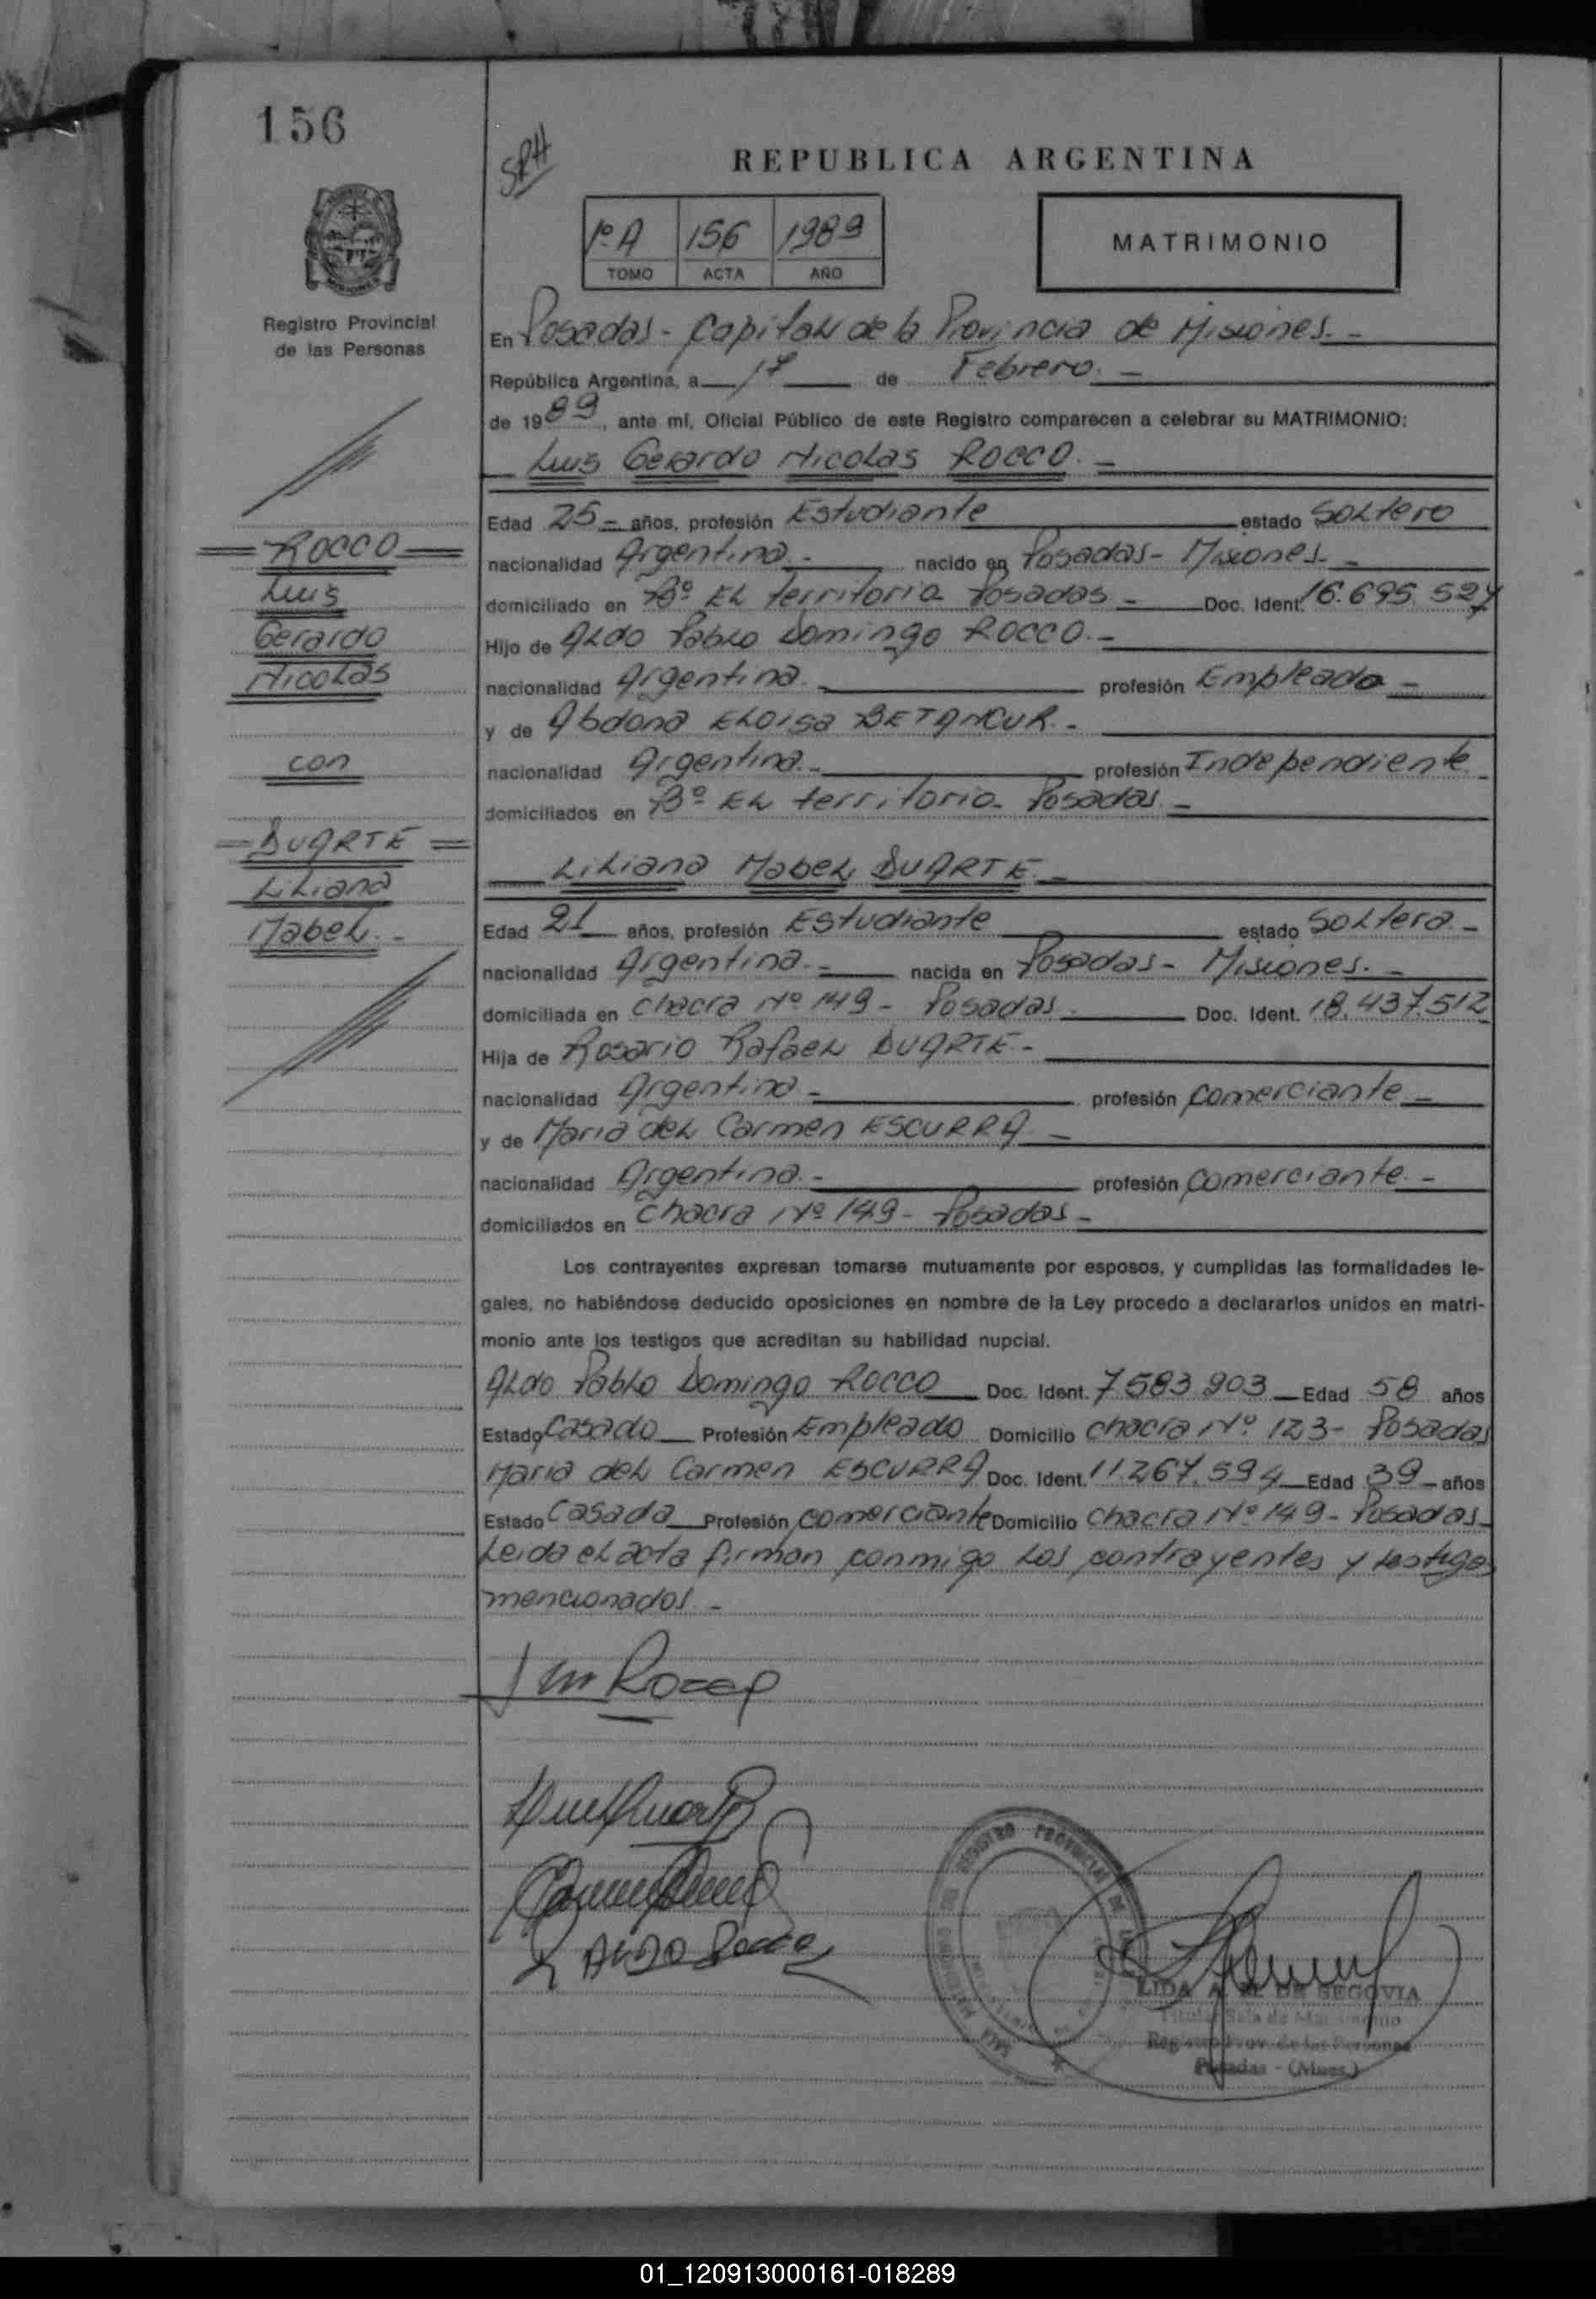 156
SRH
REPUBLICA ARGENTINA
1º A 156 1989
TOMO ACTA AÑO
MATRIMONIO
Registro Provincial
de las Personas
En Posadas - Capital de la Provincia de Misiones. -
República Argentina, a 17 de Febrero. -
de 1989, ante mí, Oficial Público de este Registro comparecen a celebrar su MATRIMONIO:
Luis Gerardo Nicolas ROCCO. -
Edad 25 - años, profesión Estudiante estado Soltero
nacionalidad Argentina. - nacido en Posadas - Misiones. -
domiciliado en Bº El territorio Posadas - Doc. Ident. 16.695.527
Hijo de Aldo Pablo Domingo ROCCO. -
nacionalidad Argentina. profesión Empleado -
y de Abdona Eloisa BETANCUR. -
nacionalidad Argentina. - profesión Independiente
domiciliados en Bº El territorio - Posadas. -
Liliana Mabel DUARTE. -
Edad 21 años, profesión Estudiante estado Soltera. -
nacionalidad Argentina. - nacida en Posadas - Misiones. -
domiciliada en Chacra Nº 149 - Posadas. Doc. Ident. 18.437.512
Hija de Rosario Rafael DUARTE -
nacionalidad Argentina - profesión comerciante -
y de Maria del Carmen ESCURRA -
nacionalidad Argentina. - profesión comerciante. -
domiciliados en Chacra Nº 149 - Posadas -
Los contrayentes expresan tomarse mutuamente por esposos, y cumplidas las formalidades le-
gales, no habiéndose deducido oposiciones en nombre de la Ley procedo a declararlos unidos en matri-
monio ante los testigos que acreditan su habilidad nupcial.
Aldo Pablo Domingo ROCCO Doc. Ident. 7583903 Edad 58 años
Estado Casado Profesión Empleado Domicilio Chacra Nº 123 - Posadas
Maria del Carmen ESCURRA Doc. Ident. 11.267.594 Edad 39 - años
Estado Casada Profesión comerciante Domicilio Chacra Nº 149 - Posadas -
Leida el acta firman conmigo los contrayentes y testigos
mencionados. -
ROCCO
Luis
Gerardo
Nicolas
con
DUARTE
Liliana
Mabel. -
ALDO Rocco
REGISTRO PROVINCIAL DE
LIDA A. DE SEGOVIA
Titular Sala de Matrimonio
Registro Prov. de las Personas
Posadas - (Mnes.)
01_120913000161-018289